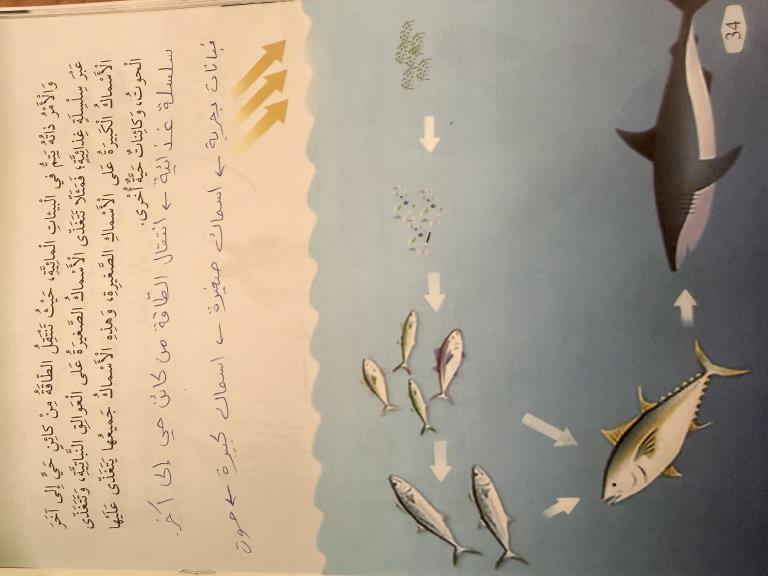 وَالْأَمْرُ ذَاتُهُ يَتِمُّ في الْبيئاتِ الْمائِيَّةِ، حَيْثُ تَنْتَقِلُ الطّاقَةُ مِنْ كائِنٍ حَيٍّ إِلى آخَرَ
عَبْرَ سِلْسِلَةٍ غِذائِيَّةٍ؛ فَمَثَلًا تَتَغَذّى الْأَسْماكُ الصَّغيرَةُ عَلى الْعَوالِقِ النَّباتِيَّةِ، وَتَتَغَذّى
الْأَسْماكُ الْكَبيرَةُ عَلى الْأَسْماكِ الصَّغيرَةِ، وَهذِهِ الْأَسْماكُ جَميعُها يَتَغَذّى عَلَيْها
الْحوتُ، وَكائِناتٌ حَيَّةٌ أُخْرى.
سلسلة غذائية ← انتقال الطّاقة من كائن حي إلى آخر.
نباتات بحرية ← اسماك صغيرة ← اسماك كبيرة ← حوت
34